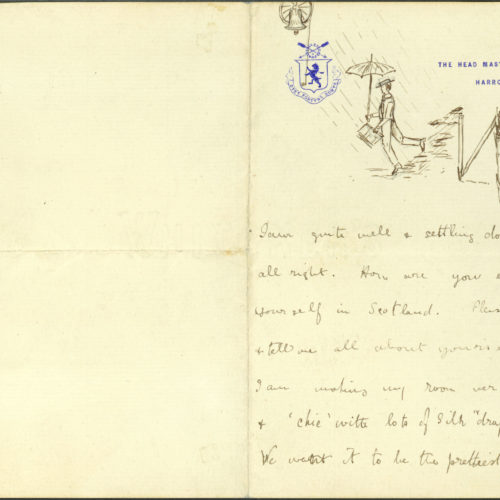 THE HEAD MAS
HARRO
I am quite well & settling do
all right. How are you
yourself in Scotland. Pleas
& tell me all about yours
I am making my room ver
& 'chic' with lots of silk "drap
We want it to be the prettiest